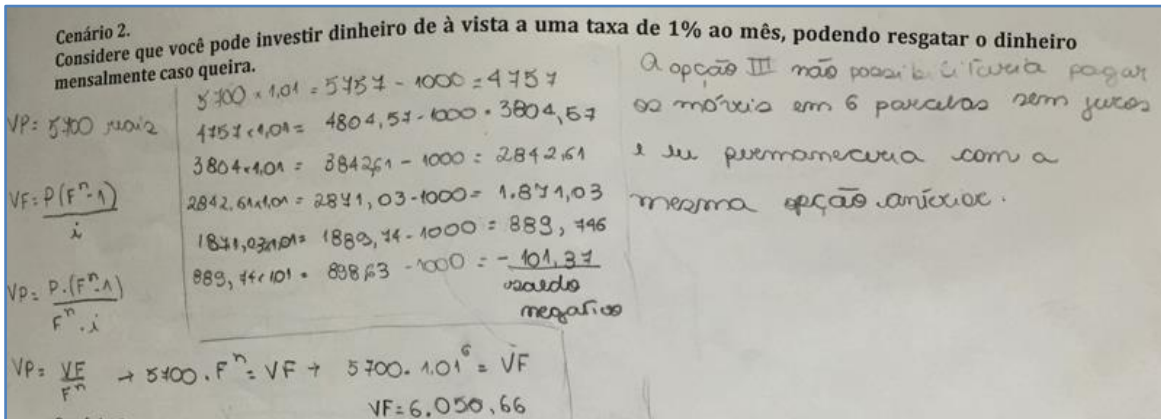 Cenário 2.
Considere que você pode investir dinheiro de à vista a uma taxa de 1% ao mês, podendo resgatar o dinheiro
mensalmente caso queira.
VP: 5700 reais
VF= P(Fⁿ-1) / i
VP= P.(Fⁿ-1) / Fⁿ.i
5700 x 1,01 = 5757 - 1000 = 4757
4757 x 1,01 = 4804,57 - 1000 = 3804,57
3804 x 1,01 = 3842,61 - 1000 = 2842,61
2842,61 x 1,01 = 2871,03 - 1000 = 1.871,03
1871,03 x 1,01 = 1889,74 - 1000 = 889,746
889,74 x 101 = 898,63 - 1000 = - 101,37
saldo
negativo
VP= VF / Fⁿ → 5700. Fⁿ = VF → 5700. 1.01⁶ = VF
VF= 6.050,66
A opção III não possibilitaria pagar
os móveis em 6 parcelas sem juros
e eu permaneceria com a
mesma opção anterior.